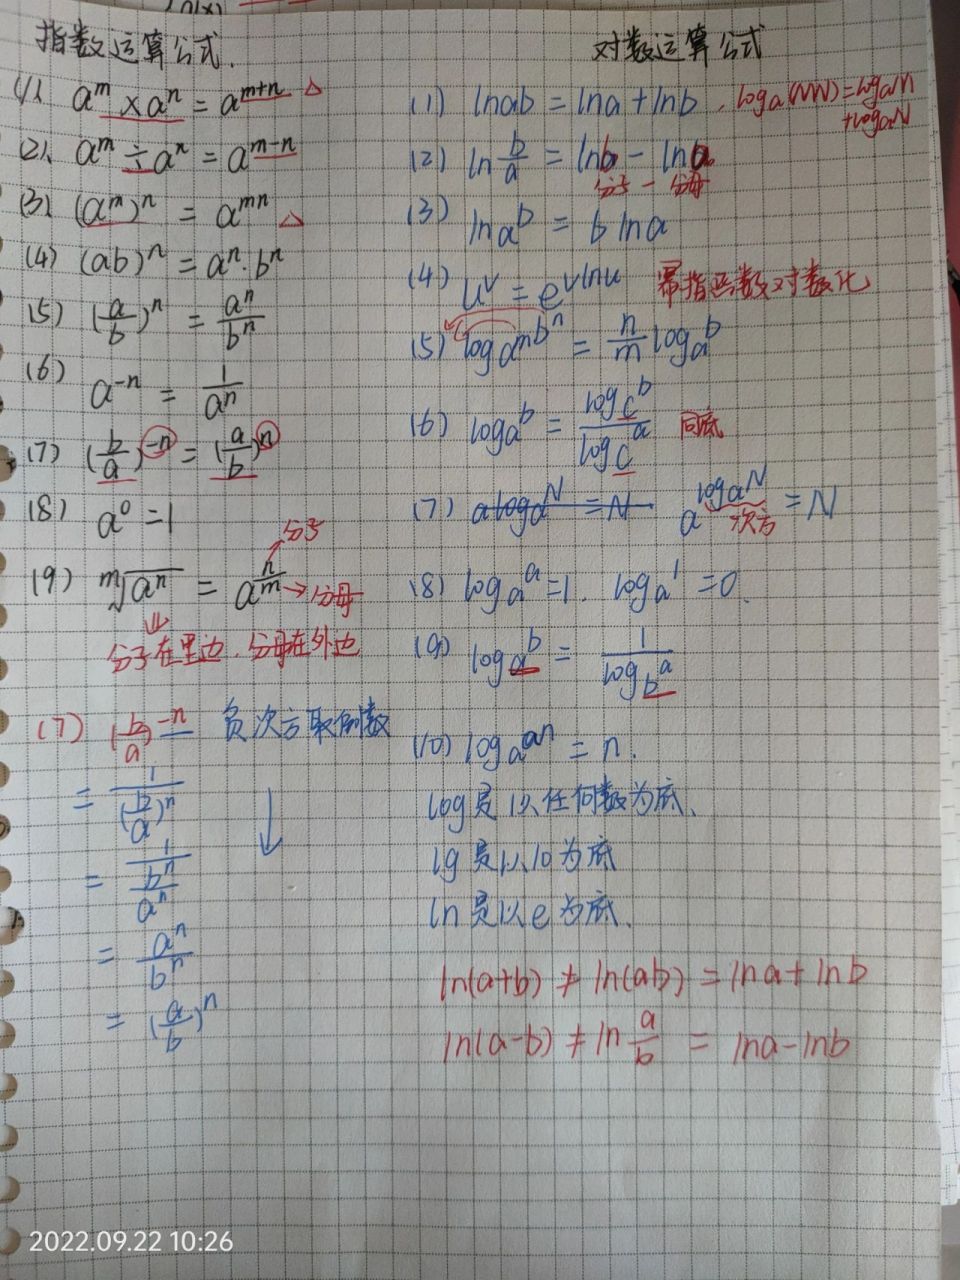 指数运算公式.
(1)、 a^m × a^n = a^{m+n} △
(2)、 a^m ÷ a^n = a^{m-n}
(3)、 (a^m)^n = a^{mn} △
(4) (ab)^n = a^n · b^n
(5) (a/b)^n = a^n/b^n
(6) a^{-n} = 1/a^n
(7) (b/a)^{-n} = (a/b)^n
(8) a^0 = 1
(9) ᵐ√(a^n) = a^{n/m} →分母
分子
分子在里边.分母在外边
(7) (b/a)^{-n} 负次方取倒数
= 1/(b/a)^n
= 1/(b^n/a^n)
= a^n/b^n
= (a/b)^n
对数运算公式
(1) lnab = lna + lnb . log_a(MN) = log_a M
+ log_a N
(2) ln b/a = lnb - lna
分子 - 分母
(3) ln a^b = b lna
(4) u^v = e^{vlnu} 幂指函数对数化
(5) log_{a^m} b^n = n/m log_a b
(6) log_a b = log_c b / log_c a 同底
(7) a^{log_a N} = N a^{log_a N} = N
次方
(8) log_a a = 1. log_a 1 = 0.
(9) log_a b = 1/log_b a
(10) log_a a^n = n.
log是以任何数为底、
lg是以10为底
ln是以e为底.
ln(a+b) ≠ ln(ab) = lna + lnb
ln(a-b) ≠ ln a/b = lna - lnb
2022.09.22 10:26